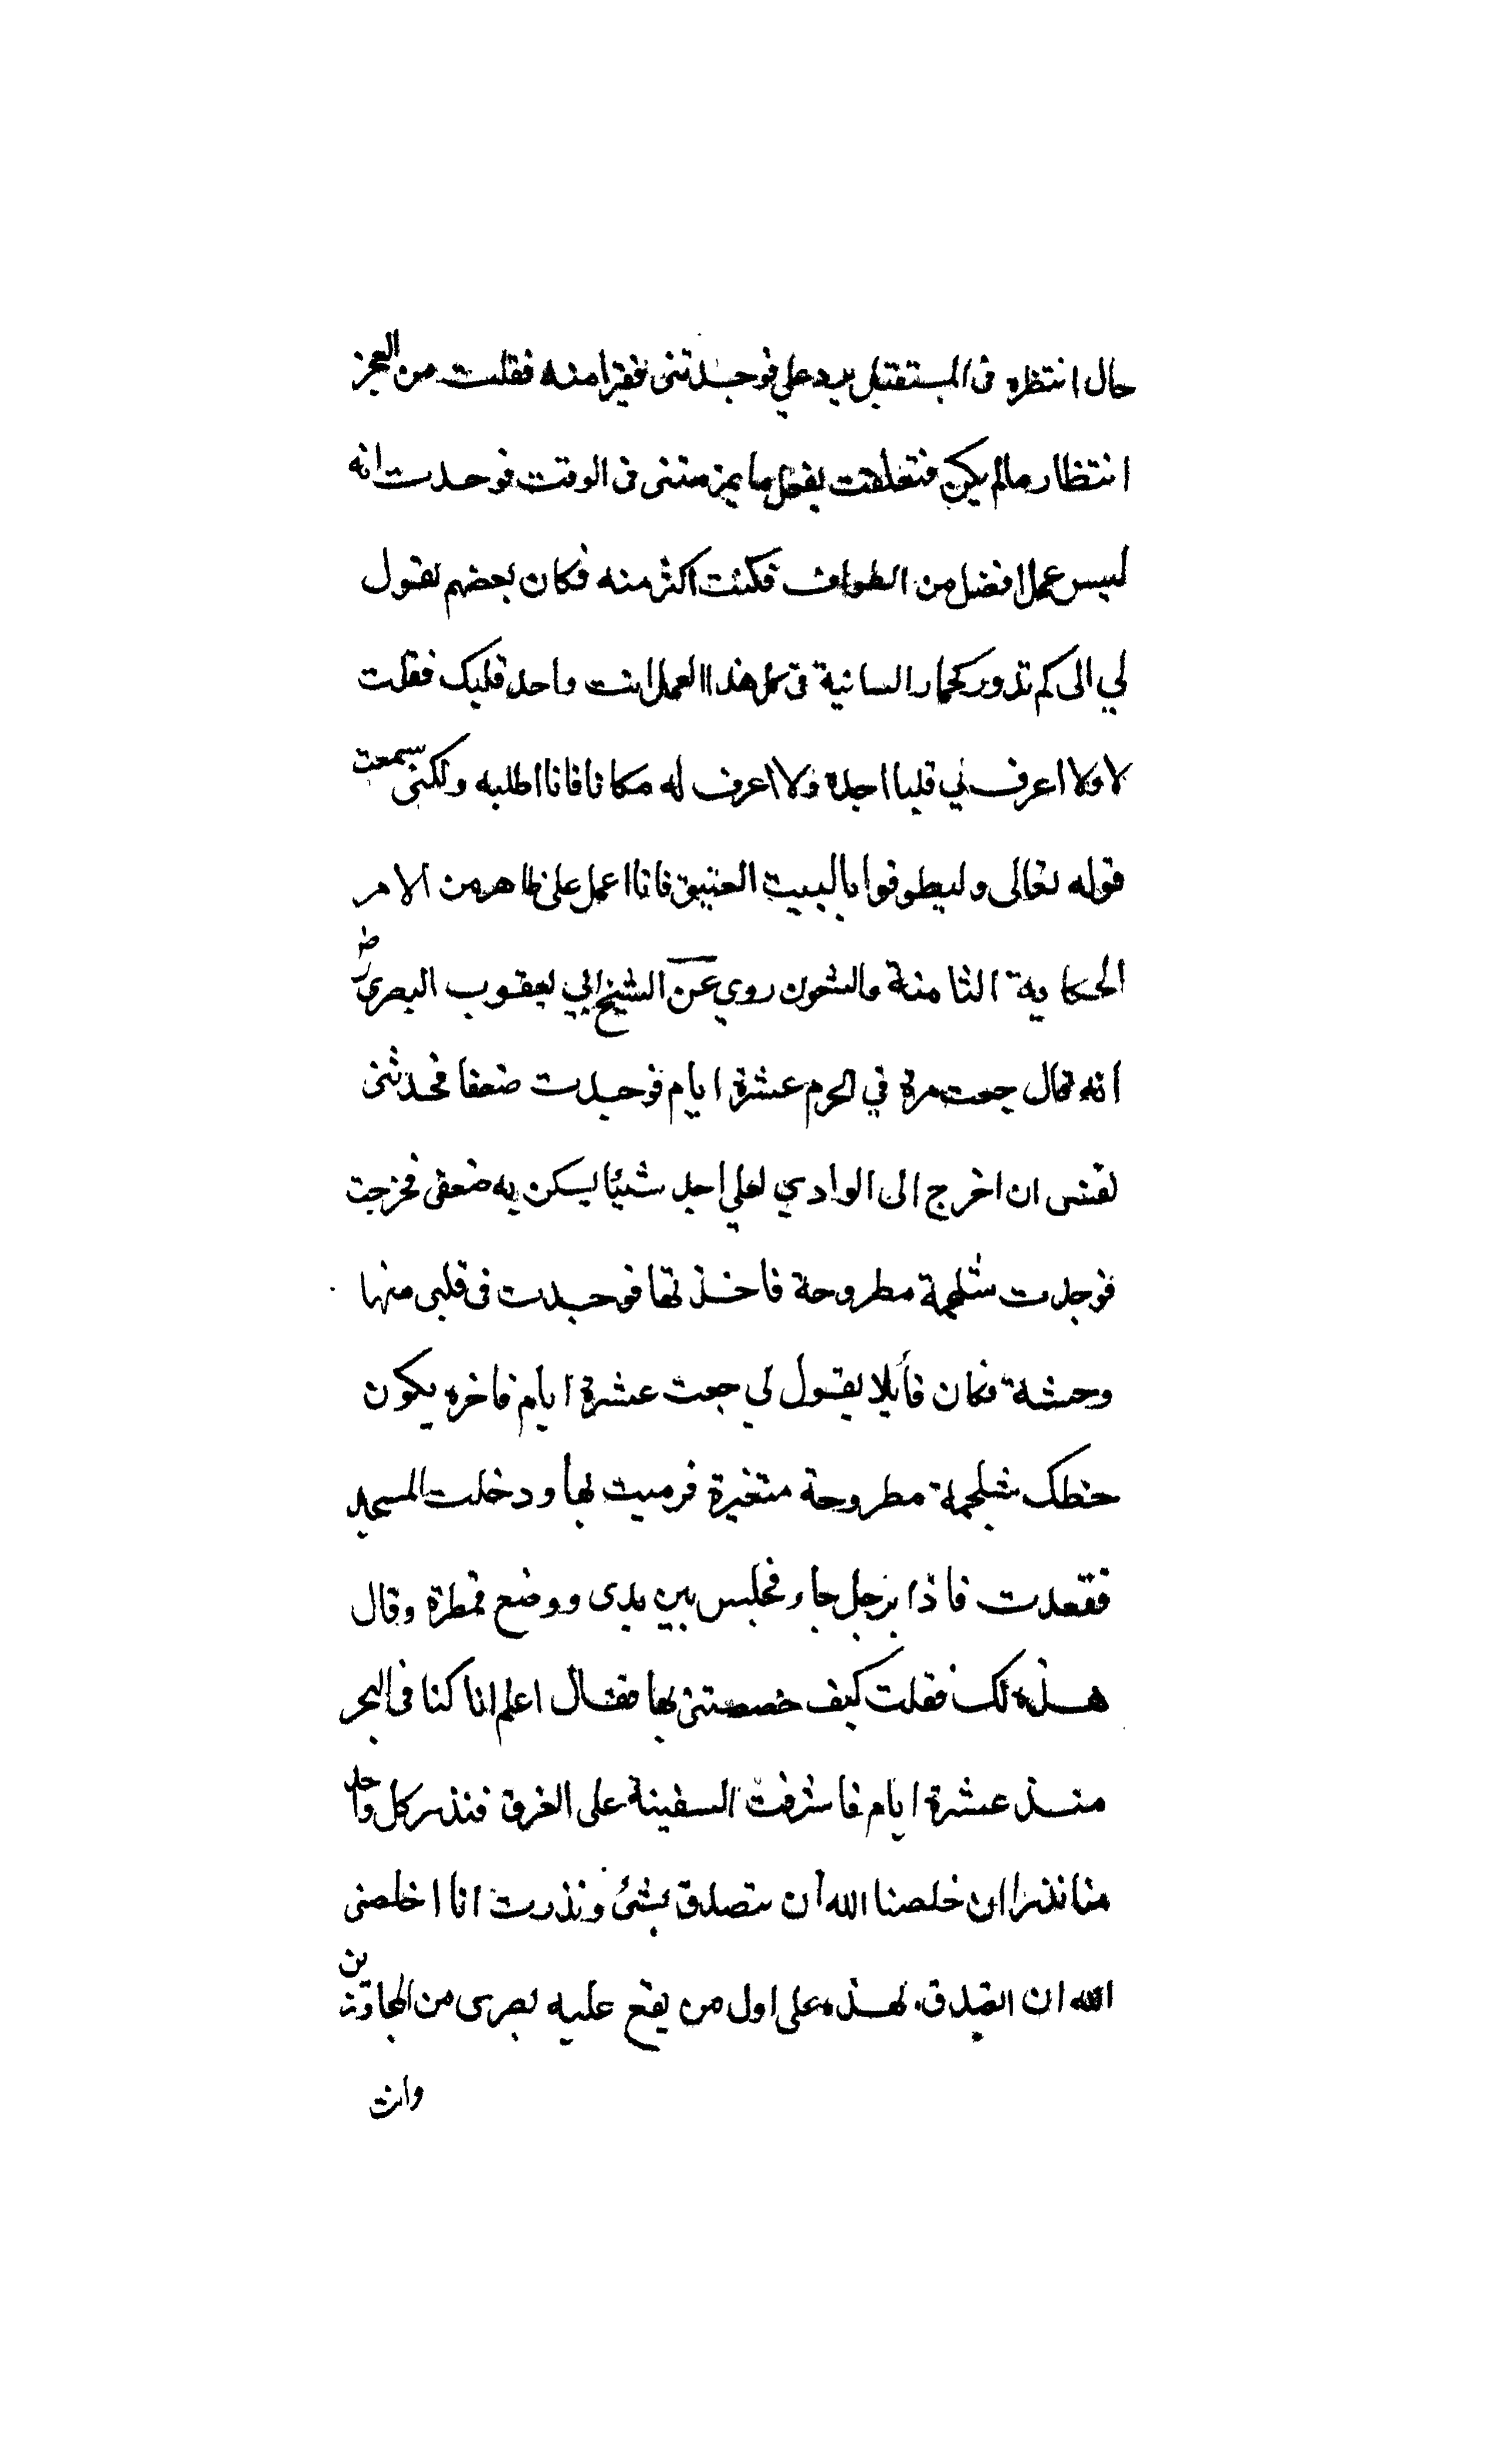 حال انتظره فى المستقبل يرد علي فوجدتنى فقيرا منه فقلت من العجز
انتظار مالم يكن فتعلقت بفعل ما يميزمتنى فى الوقت فوجدت انه
ليس عمل افضل من الطواف فكنت اكثر منه فكان بعضهم يقول
لي الى كم تدور كحمار السانية فى كل هذا العمل انت واحد قلبك فقلت
لا ولا اعرف لي قلبا اجده ولا اعرف له مكانا فانا اطلبه ولكنى سمعت
قوله تعالى وليطوفوا بالبيت العتيق فانا اعمل على ظاهر من الامر
الحكاية الثامنة والستون روي عن الشيخ ابي يعقوب البصرى رض
انه قال جعت مرة في الحرم عشرة ايام فوجدت ضعفا فحدثتنى
نفسى ان اخرج الى الوادي لعلي اجد شيئا يسكن به ضعفى فخرجت
فوجدت شلجمة مطروحة فاخذتها فوجدت فى قلبى منها
وحشة فكان قائلا يقول لي جعت عشرة ايام فاخره يكون
حظك شلجمة مطروحة متغيرة فرميت بها ودخلت المسجد
فقعدت فاذا برجل جاء فجلس بين يدى ووضع قمطرة وقال
هذه لك فقلت كيف خصصتنى بها فقال اعلم انا كنا فى البحر
منذ عشرة ايام فاشرفت السفينة على الغرق فنذر كل واحد
منا نذرا ان خلصنا الله ان يتصدق بشئ ونذرت انا اخلصنى
الله ان اتصدق بهذه على اول من يقع عليه بصرى من المجاورين
وانت